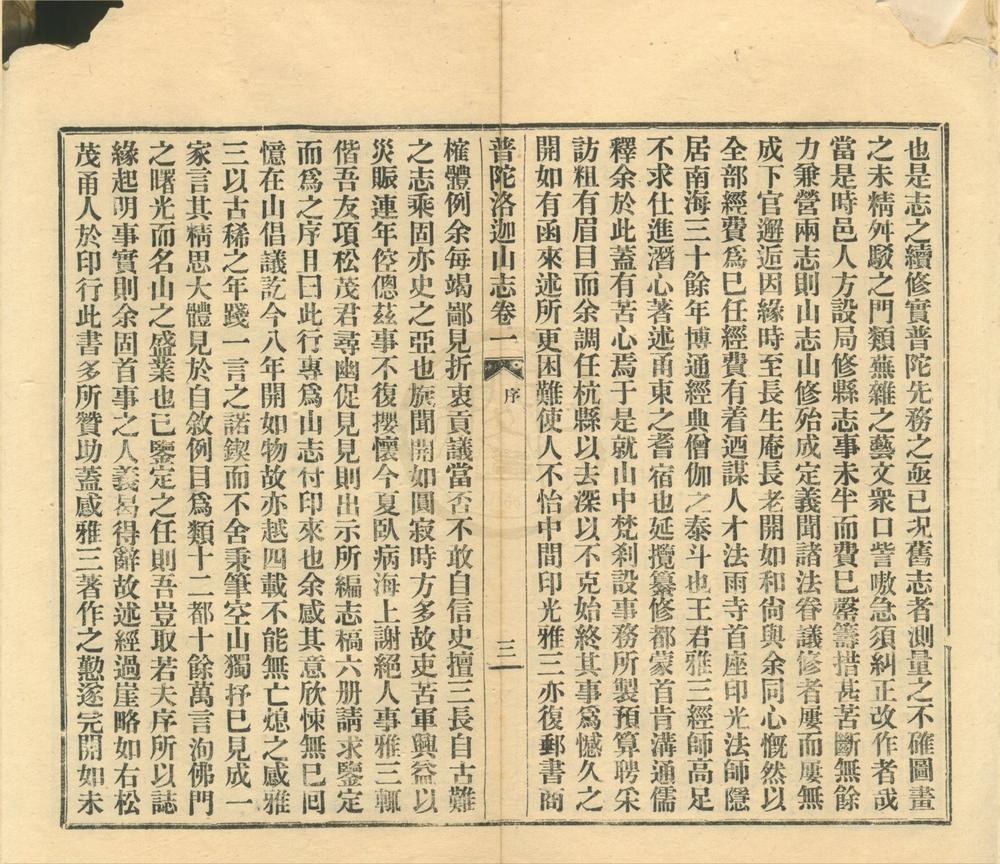 也是志之續修實普陀先務之亟已况舊志者測量之不確圖畫
之未精舛駁之門類蕪雜之藝文衆口訾嗷急須糾正改作者哉
當是時邑人方設局修縣志事未半而費已罄籌措甚苦斷無餘
力兼營兩志則山志山修殆成定義聞諸法眷議修者屢而屢無
成下官邂逅因緣時至長生庵長老開如和尙與余同心慨然以
全部經費爲已任經費有着迺謀人才法雨寺首座印光法師隱
居南海三十餘年博通經典僧伽之泰斗也王君雅三經師高足
不求仕進潛心著述甬東之耆宿也延攬纂修都蒙首肯溝通儒
釋余於此蓋有苦心焉于是就山中梵刹設事務所製預算聘采
訪粗有眉目而余調任杭縣以去深以不克始終其事爲憾久之
開如有函來述所更困難使人不怡中間印光雅三亦復郵書商
普陀洛迦山志卷一
序
三
榷體例余每竭鄙見折衷貢議當否不敢自信史擅三長自古難
之志乘固亦史之亞也旋聞開如圓寂時方多故吏苦軍興益以
災賑連年倥偬茲事不復攖懷今夏臥病海上謝絕人事雅三輒
偕吾友項松茂君尋幽促見見則出示所編志稿六册請求鑒定
而爲之序且曰此行專爲山志付印來也余感其意欣悚無已回
憶在山倡議訖今八年開如物故亦越四載不能無亡熄之感雅
三以古稀之年踐一言之諾鍥而不舍秉筆空山獨抒已見成一
家言其精思大體見於自敘例目爲類十二都十餘萬言洵佛門
之曙光而名山之盛業也已鑒定之任則吾豈取若夫序所以誌
緣起明事實則余固首事之人義曷得辭故述經過崖略如右松
茂甬人於印行此書多所贊助蓋感雅三著作之懃遂完開如未